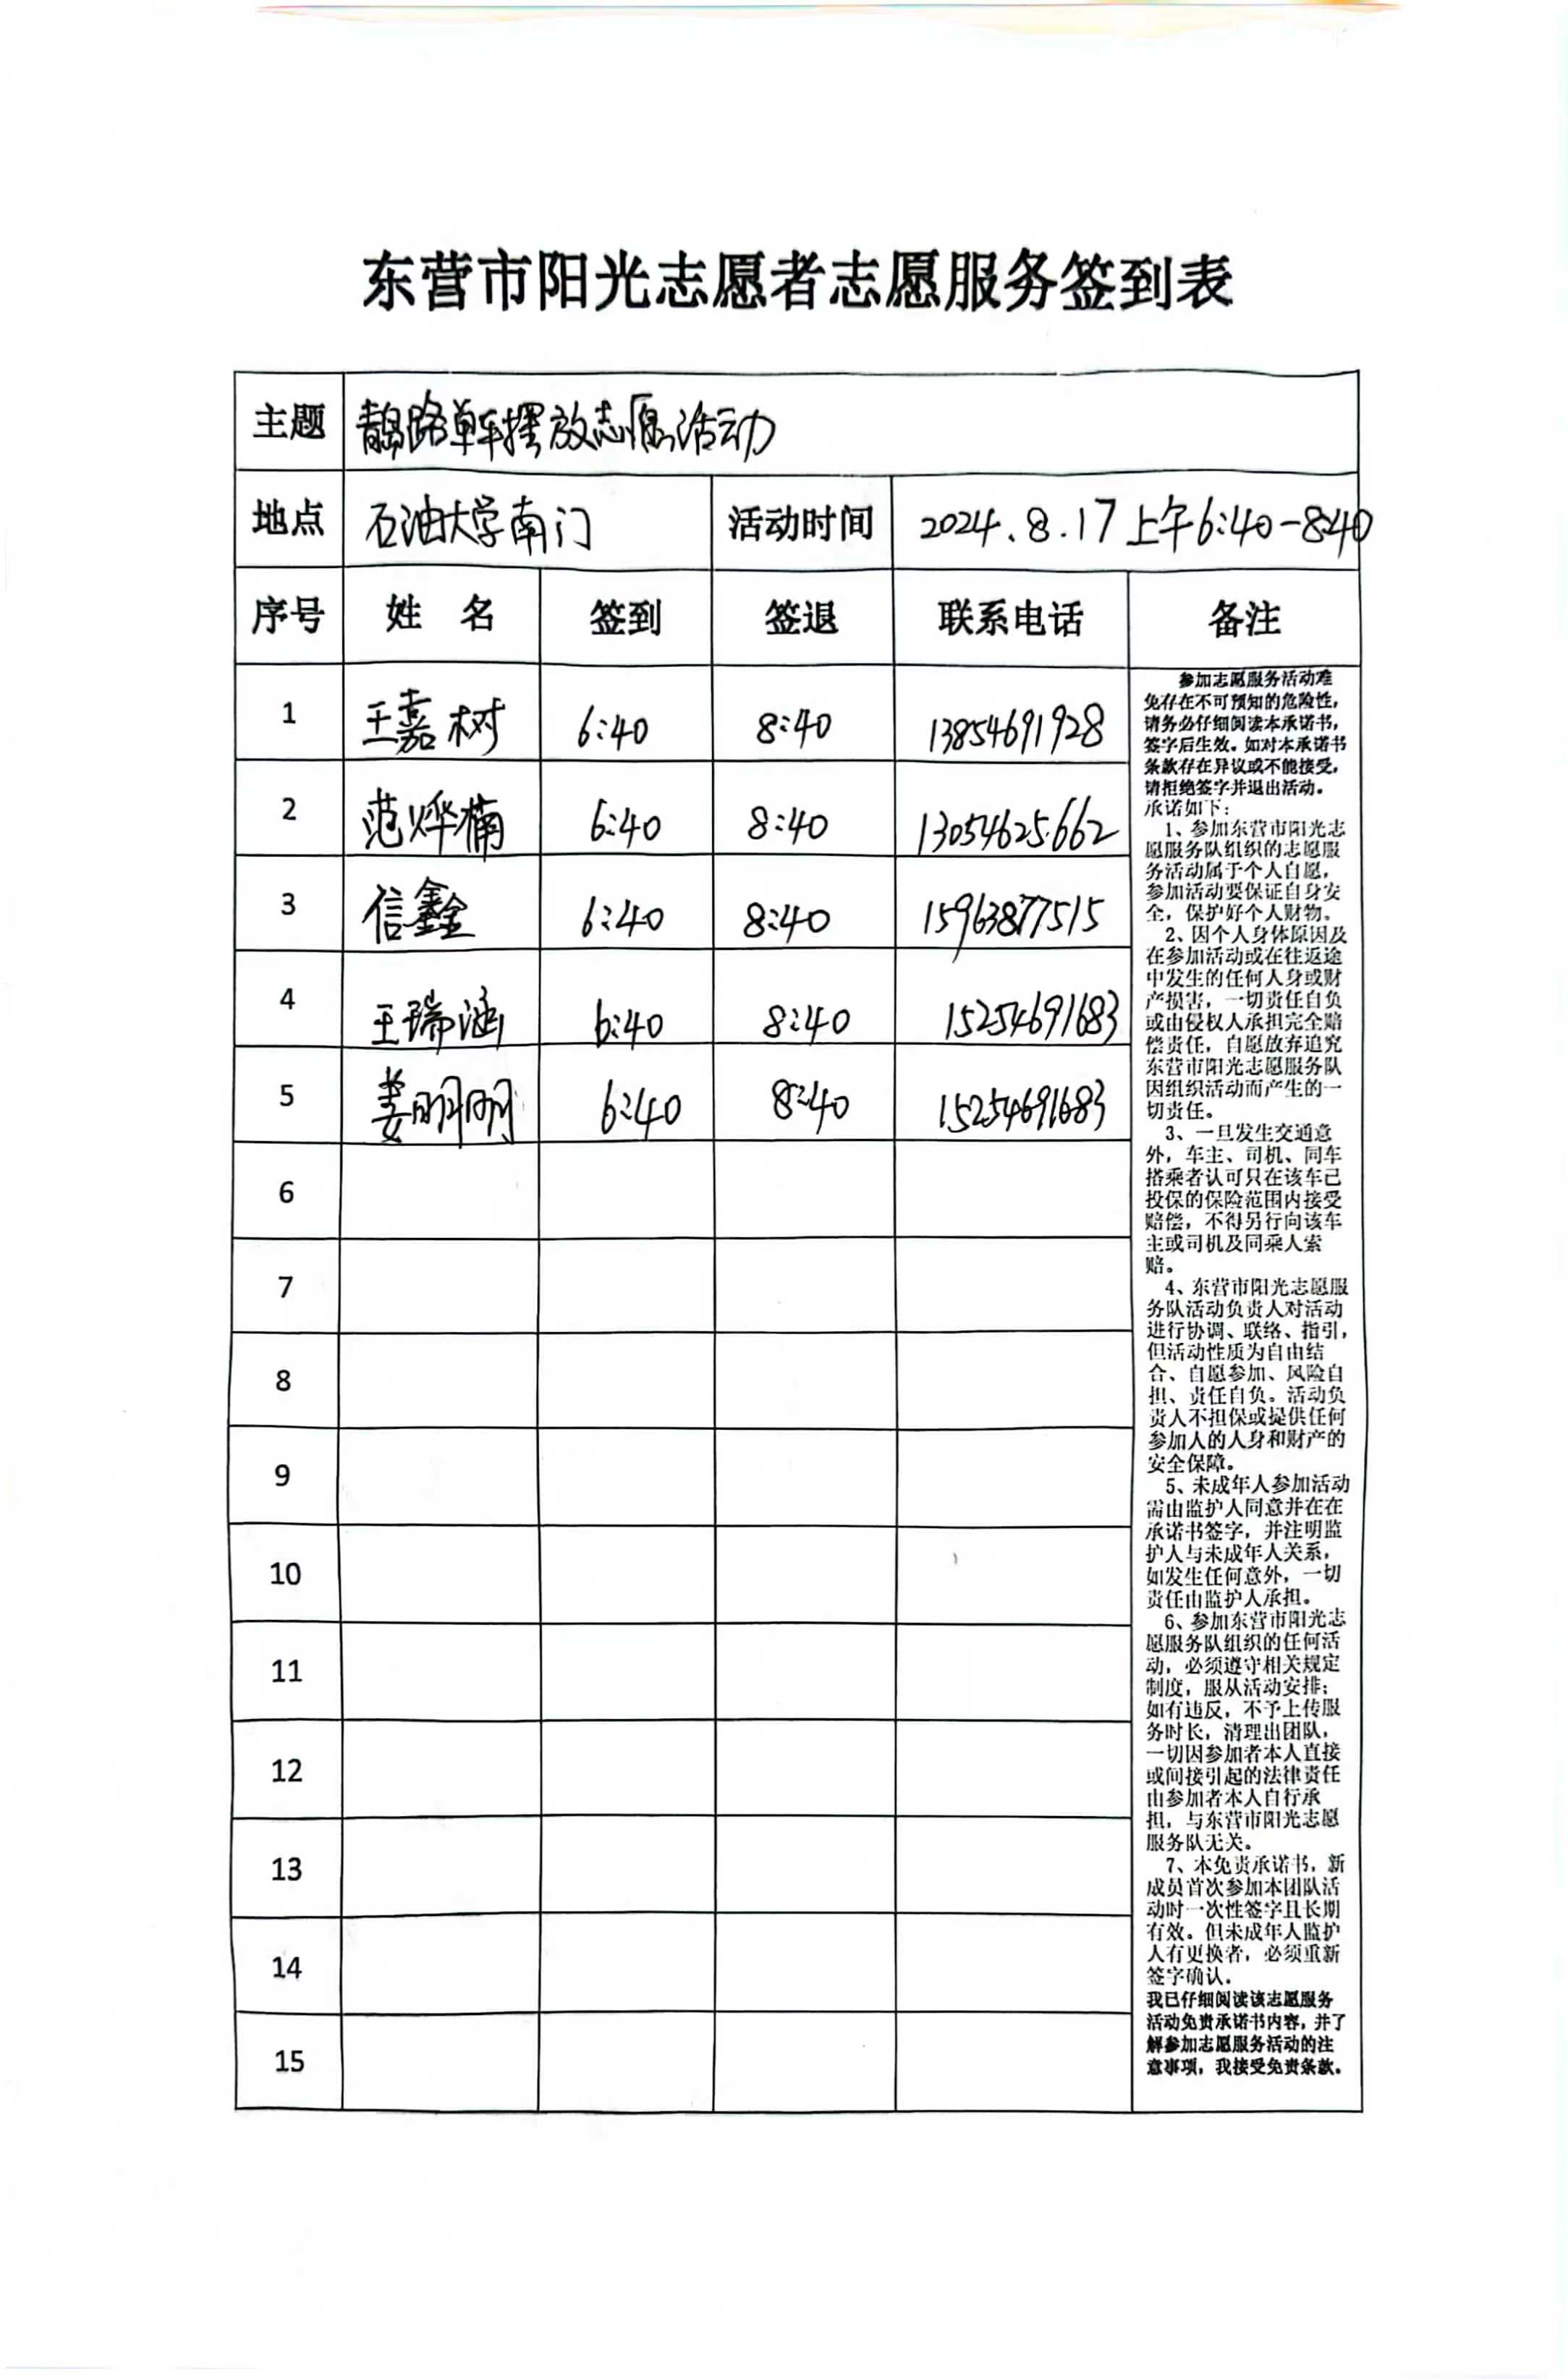 东营市阳光志愿者志愿服务签到表
主题 青岛路单车摆放志愿活动
地点 石油大学南门 活动时间 2024.8.17上午6:40-8:40
序号 姓 名 签到 签退 联系电话 备注
1 王嘉树 6:40 8:40 13854691928
2 范烨楠 6:40 8:40 13054625662
3 信鑫 6:40 8:40 15963877515
4 王瑞涵 6:40 8:40 15254691683
5 姜明明 6:40 8:40 15254691683
6
7
8
9
10
11
12
13
14
15
参加志愿服务活动难
免存在不可预知的危险性，
请务必仔细阅读本承诺书，
签字后生效。如对本承诺书
条款存在异议或不能接受，
请拒绝签字并退出活动。
承诺如下：
1、参加东营市阳光志
愿服务队组织的志愿服
务活动属于个人自愿，
参加活动要保证自身安
全，保护好个人财物。
2、因个人身体原因及
在参加活动或在往返途
中发生的任何人身或财
产损害，一切责任自负
或由侵权人承担完全赔
偿责任，自愿放弃追究
东营市阳光志愿服务队
因组织活动而产生的一
切责任。
3、一旦发生交通意
外，车主、司机、同车
搭乘者认可只在该车已
投保的保险范围内接受
赔偿，不得另行向该车
主或司机及同乘人索
赔。
4、东营市阳光志愿服
务队活动负责人对活动
进行协调、联络、指引，
但活动性质为自由结
合、自愿参加、风险自
担、责任自负。活动负
责人不担保或提供任何
参加人的人身和财产的
安全保障。
5、未成年人参加活动
需由监护人同意并在在
承诺书签字，并注明监
护人与未成年人关系，
如发生任何意外，一切
责任由监护人承担。
6、参加东营市阳光志
愿服务队组织的任何活
动，必须遵守相关规定
制度，服从活动安排；
如有违反，不予上传服
务时长，清理出团队，
一切因参加者本人直接
或间接引起的法律责任
由参加者本人自行承
担，与东营市阳光志愿
服务队无关。
7、本免责承诺书，新
成员首次参加本团队活
动时一次性签字且长期
有效。但未成年人监护
人有更换者，必须重新
签字确认。
我已仔细阅读该志愿服务
活动免责承诺书内容，并了
解参加志愿服务活动的注
意事项，我接受免责条款。